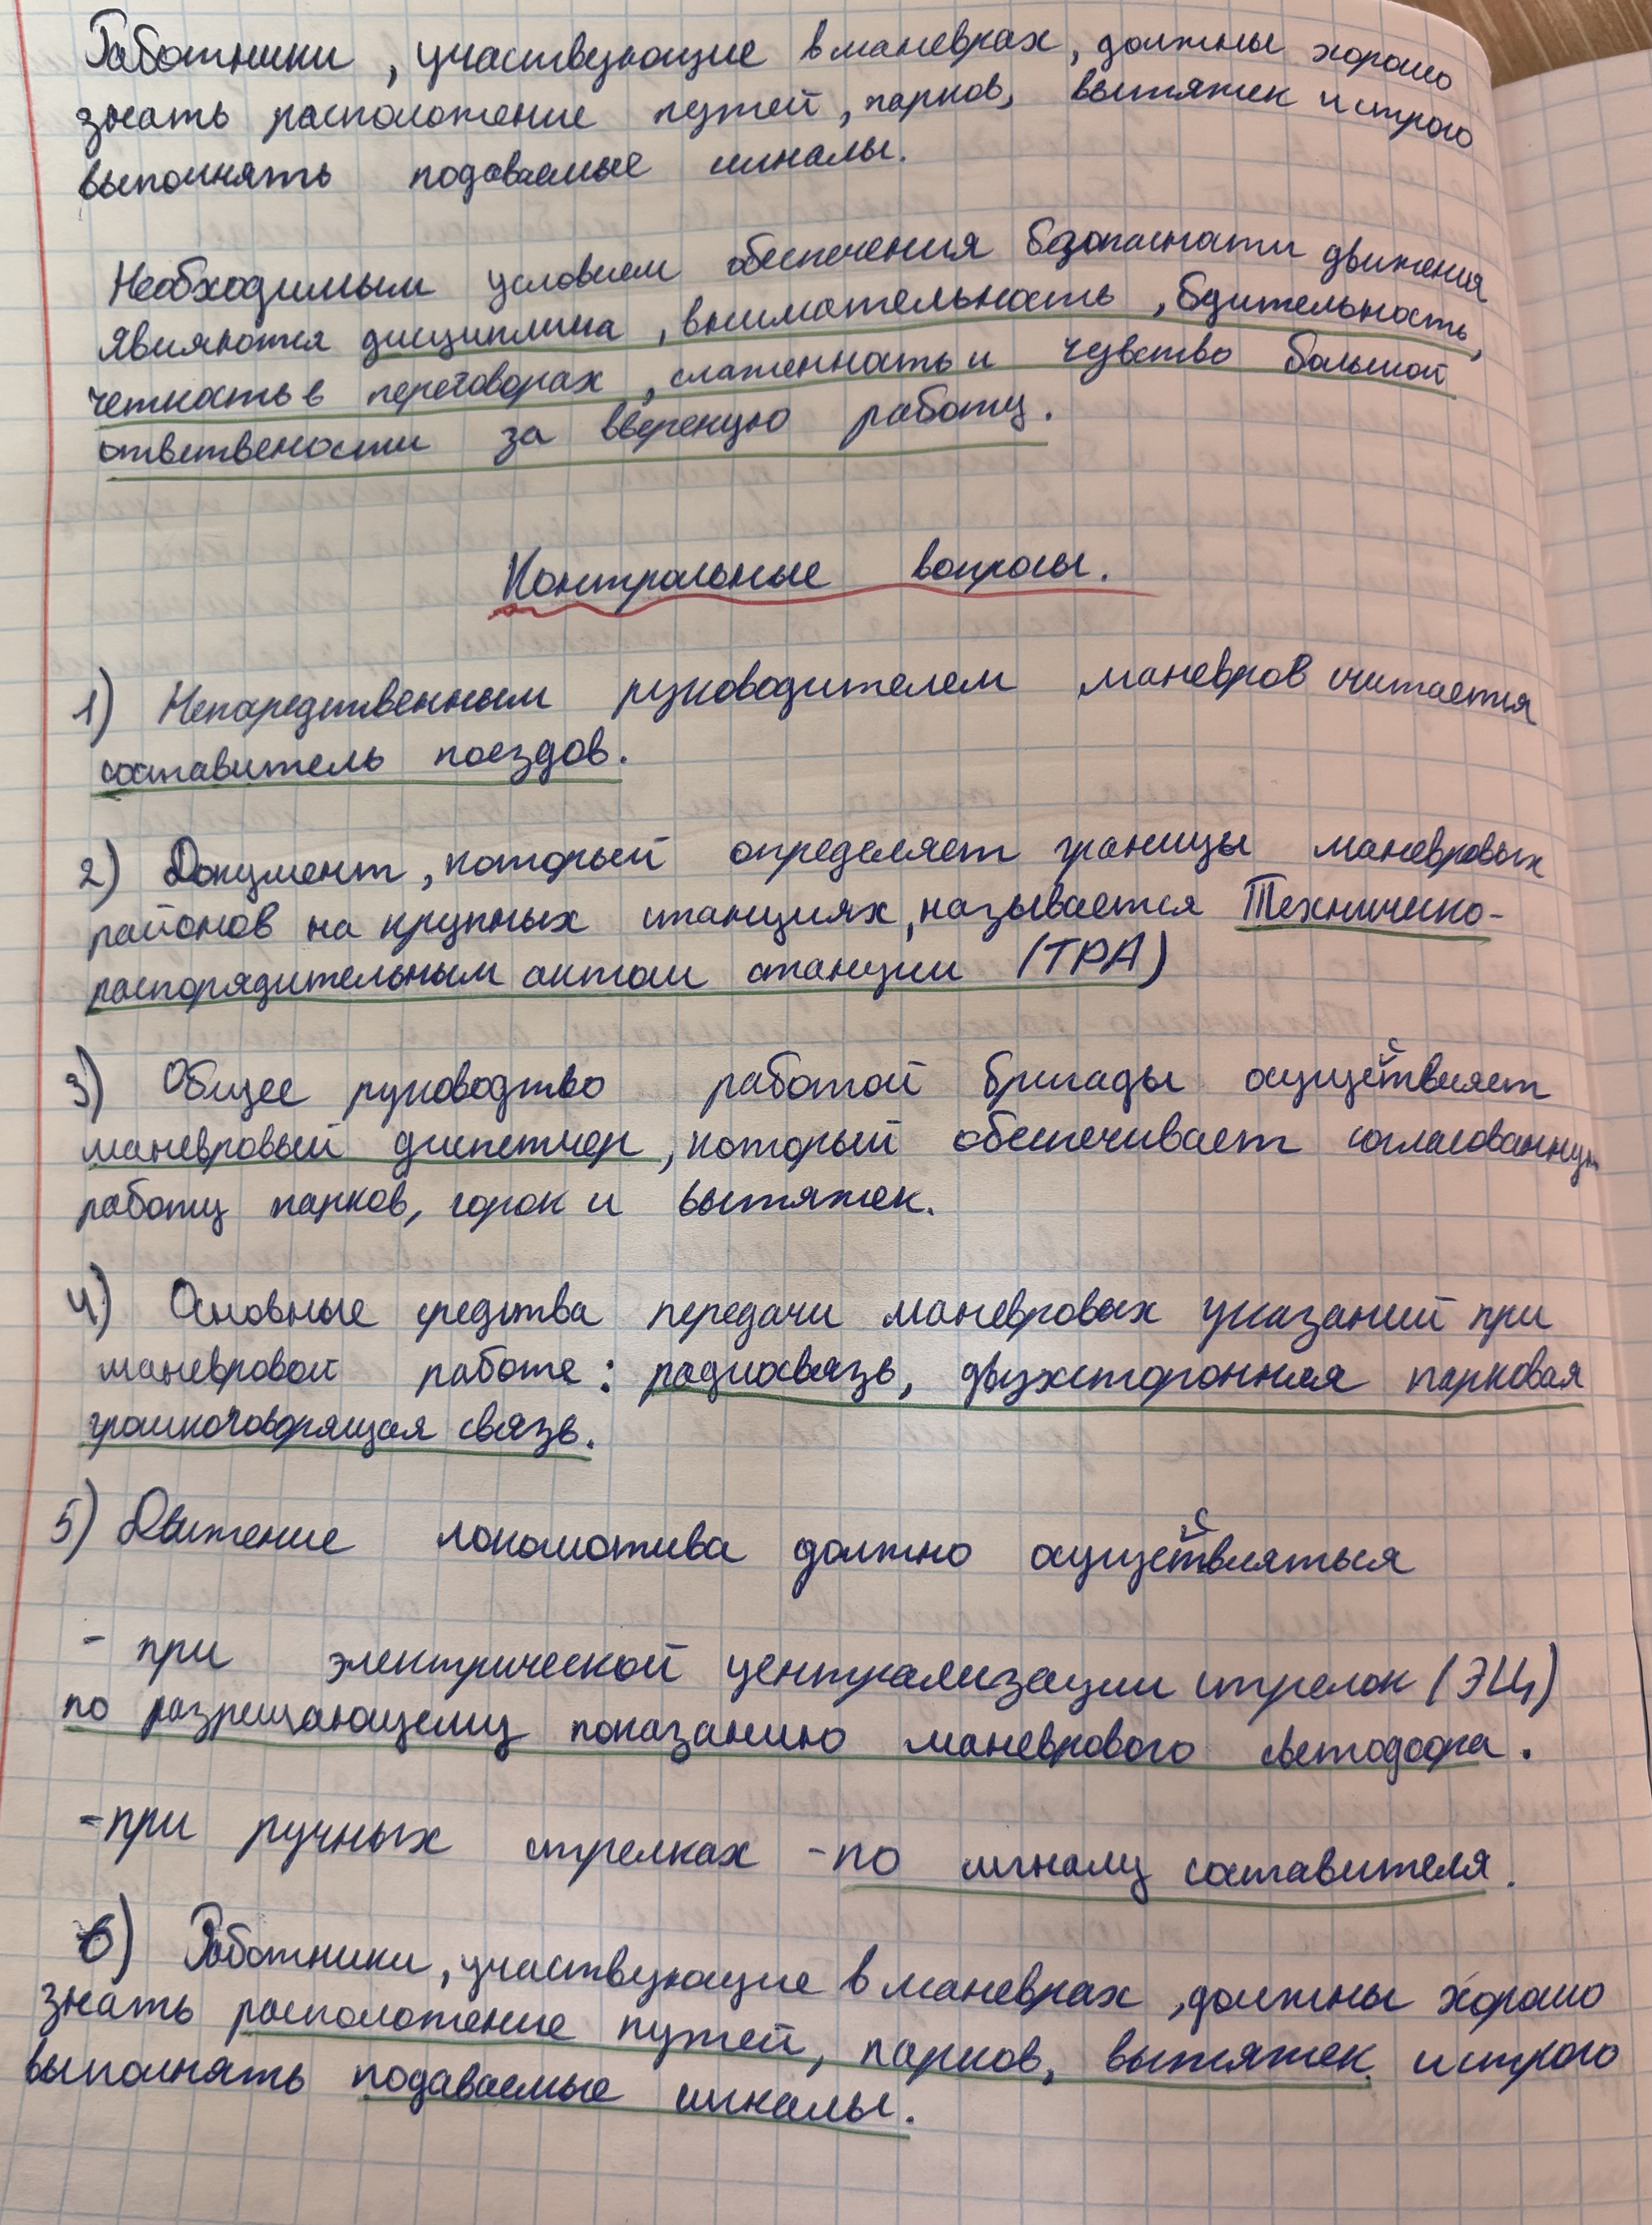 Работники, участвующие в маневрах, должны хорошо
знать расположение путей, парков, вытяжек и строго
выполнять подаваемые сигналы.
Необходимым условием обеспечения безопасности движения
являются дисциплина, внимательность, бдительность,
четкость в переговорах, слаженность и чувство большой
ответствености за ввереную работу.
Контрольные вопросы.
1) Непосредственным руководителем маневров считается
составитель поездов.
2) Документ, который определяет границы маневровых
районов на крупных станциях, называется Техническо-
распорядительным актом станции (ТРА)
3) Общее руководство работой бригады осуществляет
маневровый диспетчер, который обеспечивает согласованную
работу парков, горок и вытяжек.
4) Основные средства передачи маневровых указаний при
маневровой работе: радиосвязь, двухсторонняя парковая
громкоговорящая связь.
5) Движение локомотива должно осуществляться
- при электрической централизации стрелок (ЭЦ)
по разрещающему показанию маневрового светофора.
- при ручных стрелках - по сигналу составителя.
6) Работники, участвующие в маневрах, должны хорошо
знать расположение путей, парков, вытяжек и строго
выполнять подаваемые сигналы.